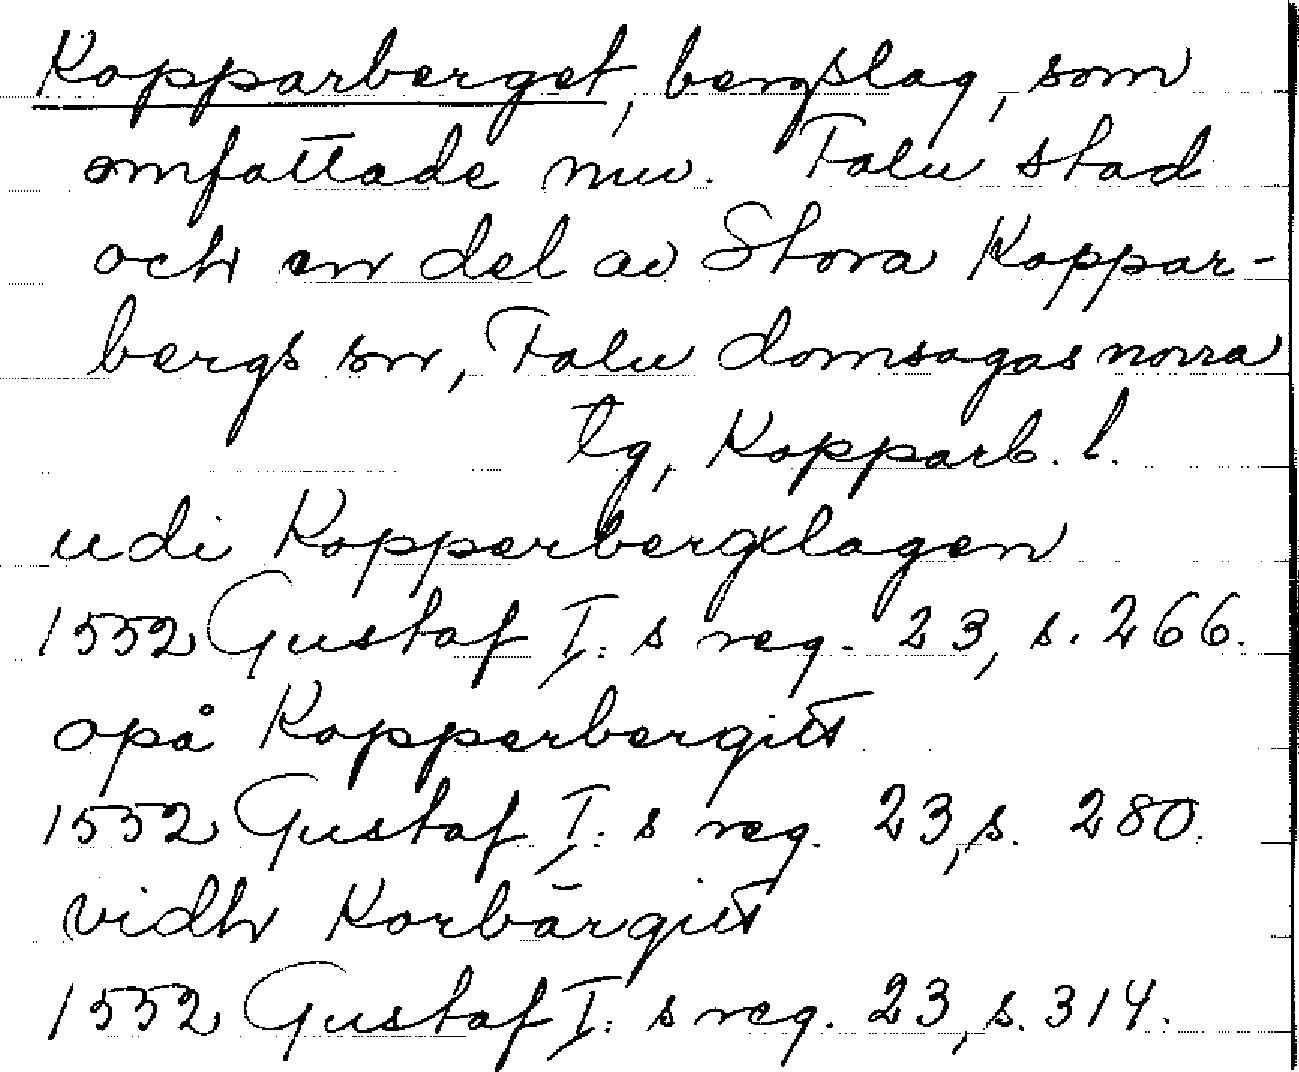 Kopparberget, bergslag, som
omfattade nuv. Falu stad
och en del av Stora Koppar-
bergs sn, Falu domsagas norra
tg, Kopparb. l.
udi Kopperbergxlagen
1552 Gustaf I:s reg. 23, s. 266.
opå Kopperbergitt
1552 Gustaf I:s reg. 23, s. 280.
vidh Korbärgitt
1552 Gustaf I:s reg. 23, s. 314.